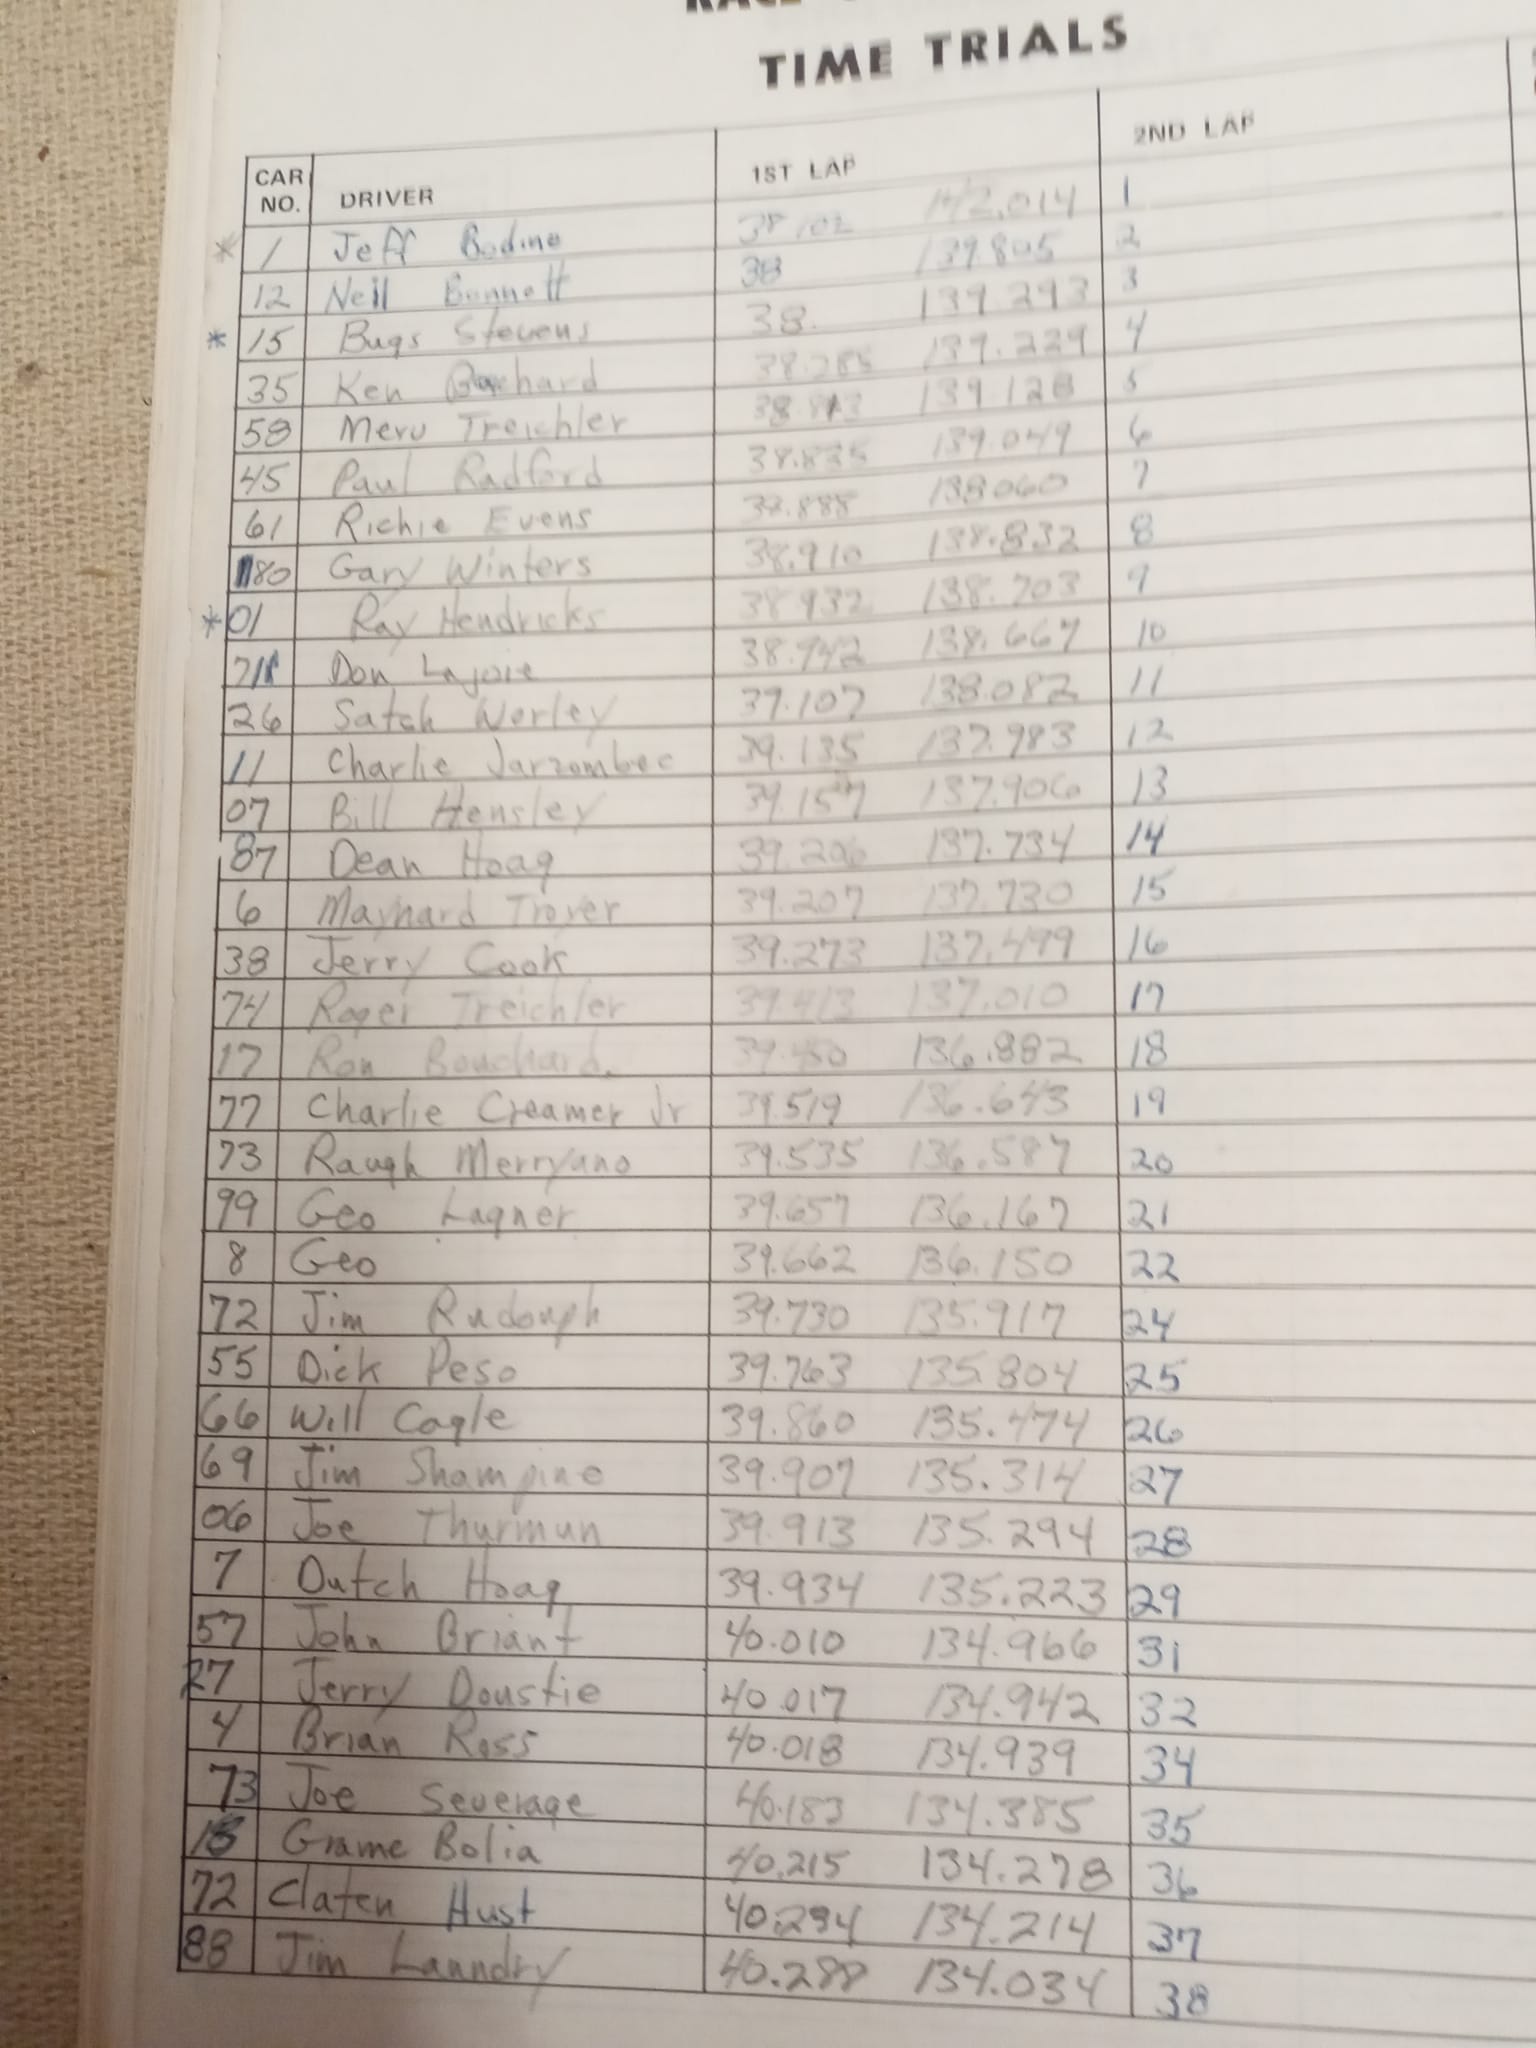 TIME TRIALS
CAR NO. DRIVER 1ST LAP 2ND LAP
* 1 Jeff Bodine 38.102 142.014 1
12 Neil Bonnett 38 139.805 2
* 15 Bugs Stevens 38. 139.293 3
35 Ken 38.285 139.229 4
58 Merv Treichler 139.128 5
45 Paul Radford 38.835 139.049 6
61 Richie Evens 38.888 138.060 7
80 Gary Winters 38.910 138.832 8
* 01 Ray Hendricks 38.932 138.703 9
71 Don Lajoie 38.942 138.667 10
26 Satch Worley 39.107 138.082 11
11 Charlie Jarzombec 39.135 137.983 12
07 Bill Hensley 39.157 137.906 13
87 Dean Hoag 39.206 137.734 14
6 Maynard Troyer 39.207 137.730 15
38 Jerry Cook 39.273 137.499 16
74 Roger Treichler 39.413 137.010 17
17 Ron Bouchard. 39.450 136.882 18
77 Charlie Creamer Jr 39.519 136.643 19
73 Raugh Merryano 39.535 136.587 20
99 Geo Lagner 39.657 136.167 21
8 Geo 39.662 136.150 22
72 Jim Rudouph 39.730 135.917 24
55 Dick Peso 39.763 135.804 25
66 Will Cagle 39.860 135.474 26
69 Jim Shampine 39.907 135.314 27
06 Joe Thurmun 39.913 135.294 28
7 Dutch Hoag 39.934 135.223 29
57 John Briant 40.010 134.966 31
27 Jerry Doustie 40.017 134.942 32
4 Brian Ross 40.018 134.939 34
73 Joe Severage 40.183 134.385 35
Grame Bolia 40.215 134.278 36
72 Claten Hust 40.294 134.214 37
88 Jim Lanndry 40.288 134.034 38